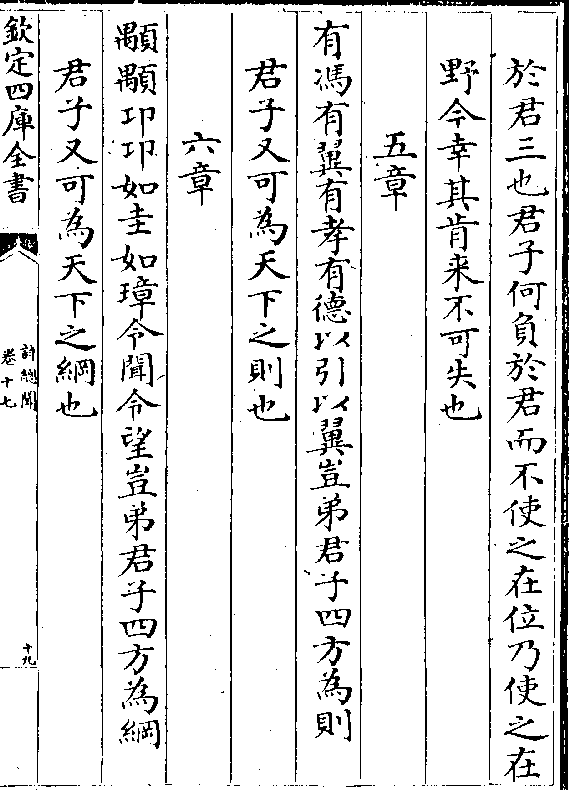 於君三也君子何負於君而不使之在位乃使之在
野今幸其肯来不可失也
五章
有馮有翼有孝有德以引以翼豈弟君子四方為則
君子又可為天下之則也
六章
顒顒卬卬如圭如璋令聞令望豈弟君子四方為綱
君子又可為天下之綱也
欽定四庫全書
詩總聞
卷十七
十九